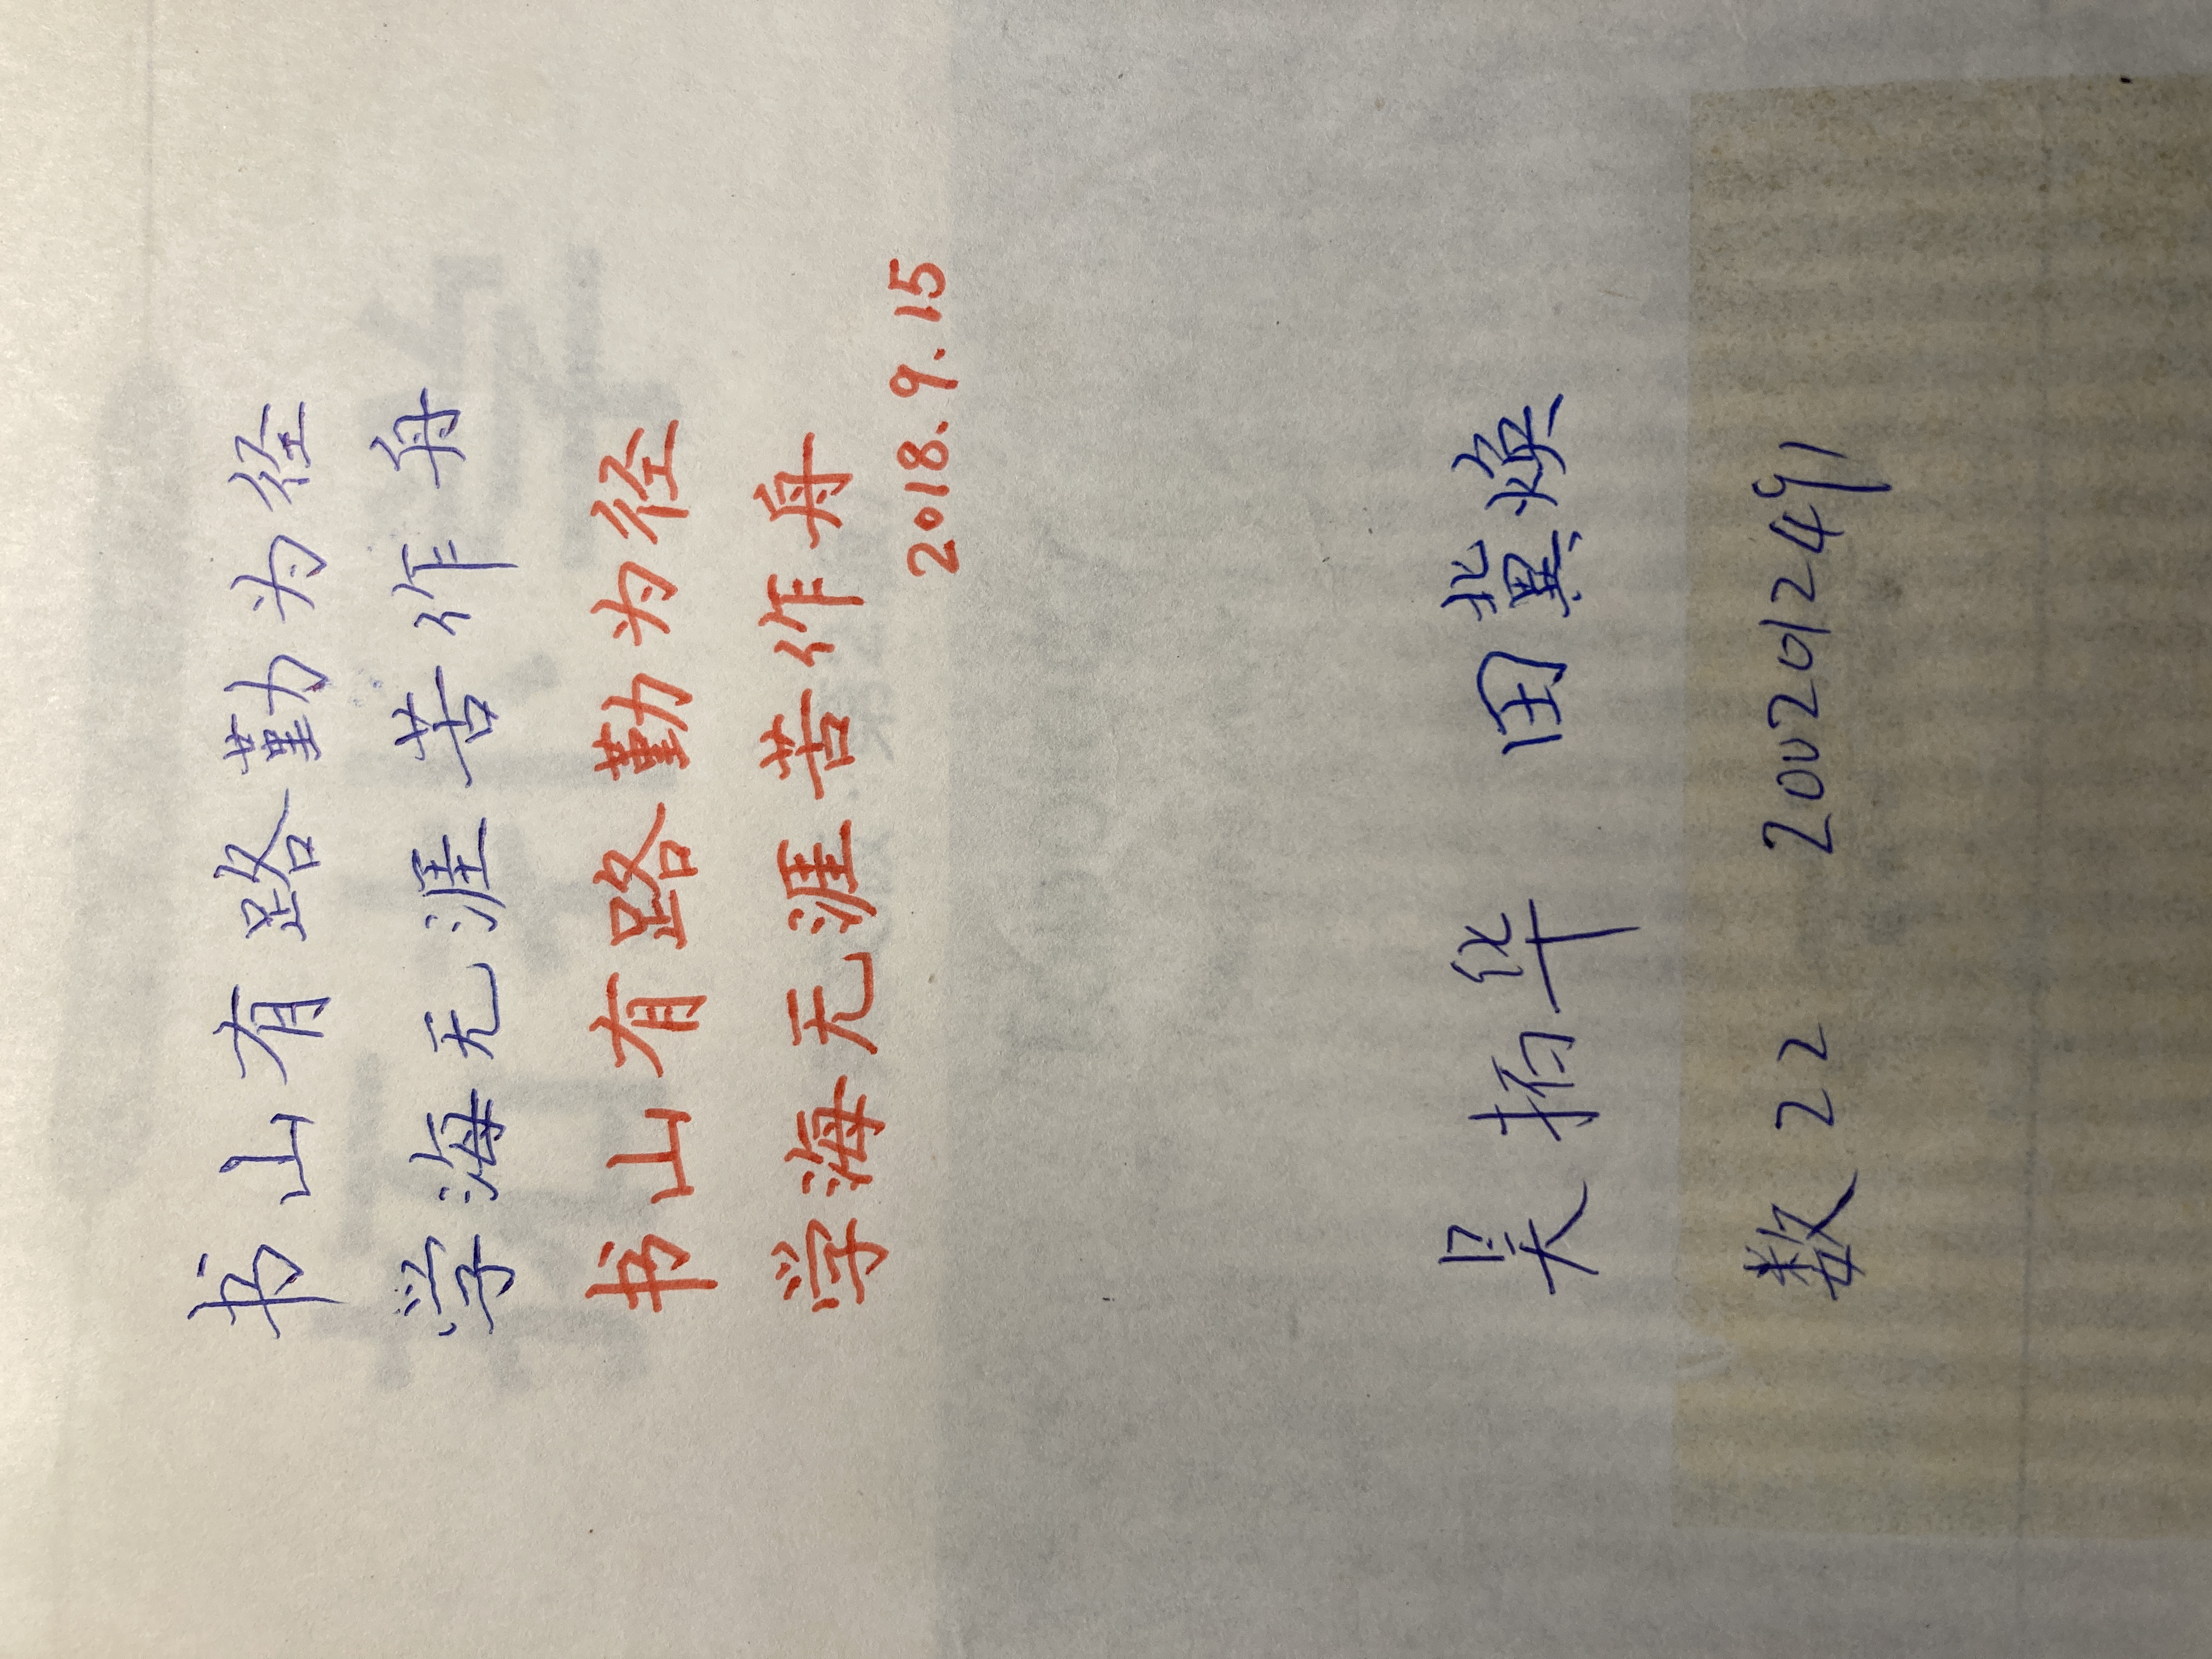 书山有路勤为径
学海无涯苦作舟
书山有路勤为径
学海无涯苦作舟
2018.9.15
吴拓华 田冀焕
数22 2002012491